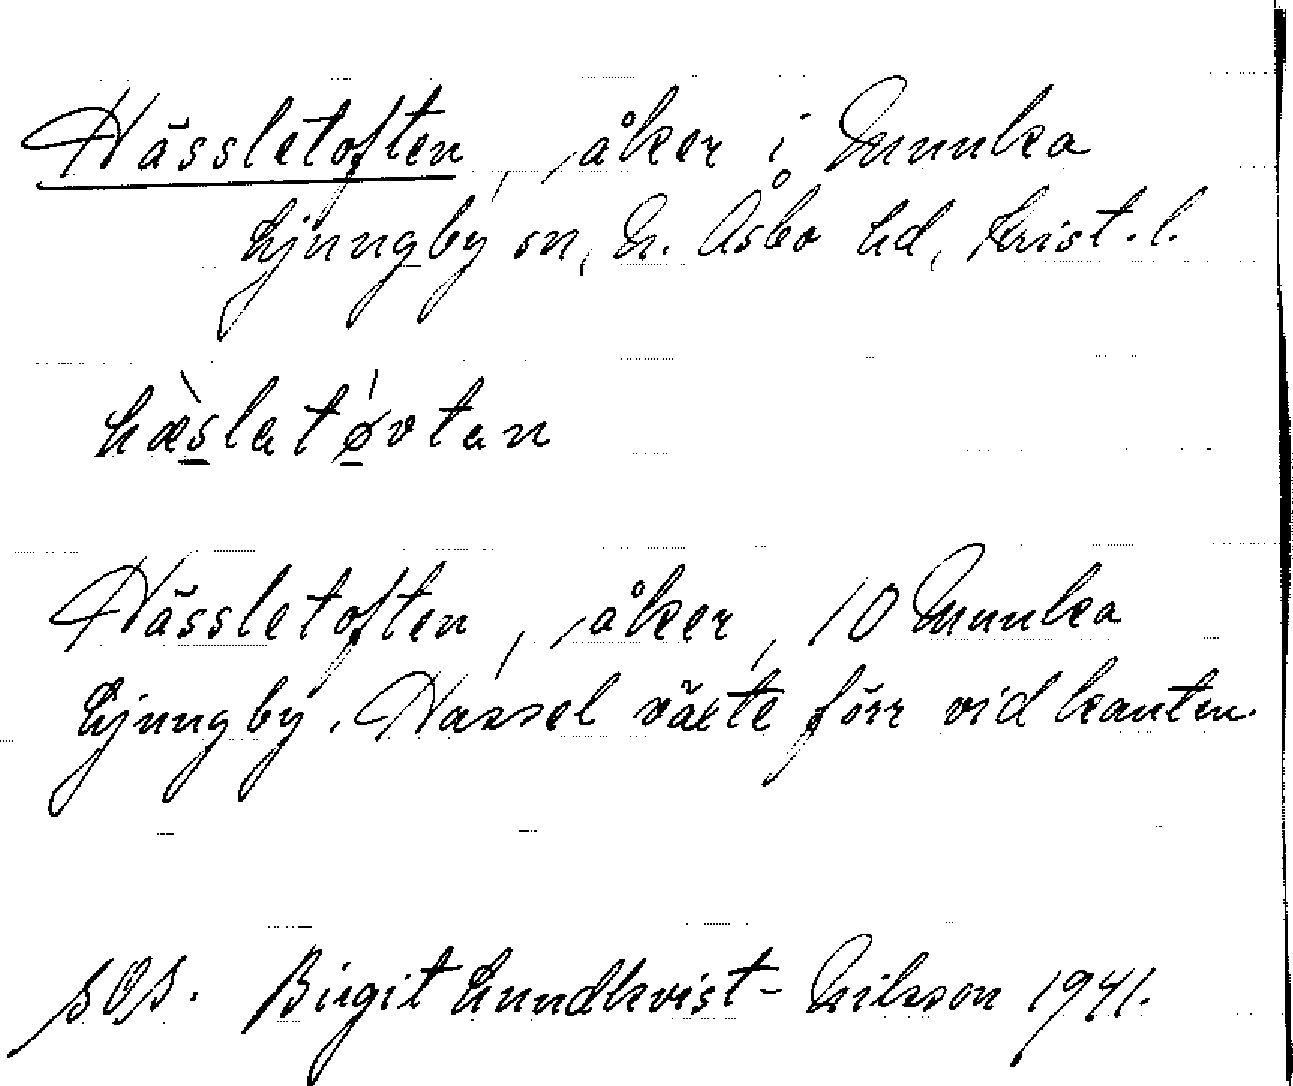 Hässletoften, åker i Munka
Ljungby sn, N. Åsbo hd, Krist. l.
hæ̀slatǿvtan
Hässletoften, åker, 10 Munka
Ljungby. Hassel växte förr vid kanten.
SOS. Birgit Lundkvist-Nilsson 1941.